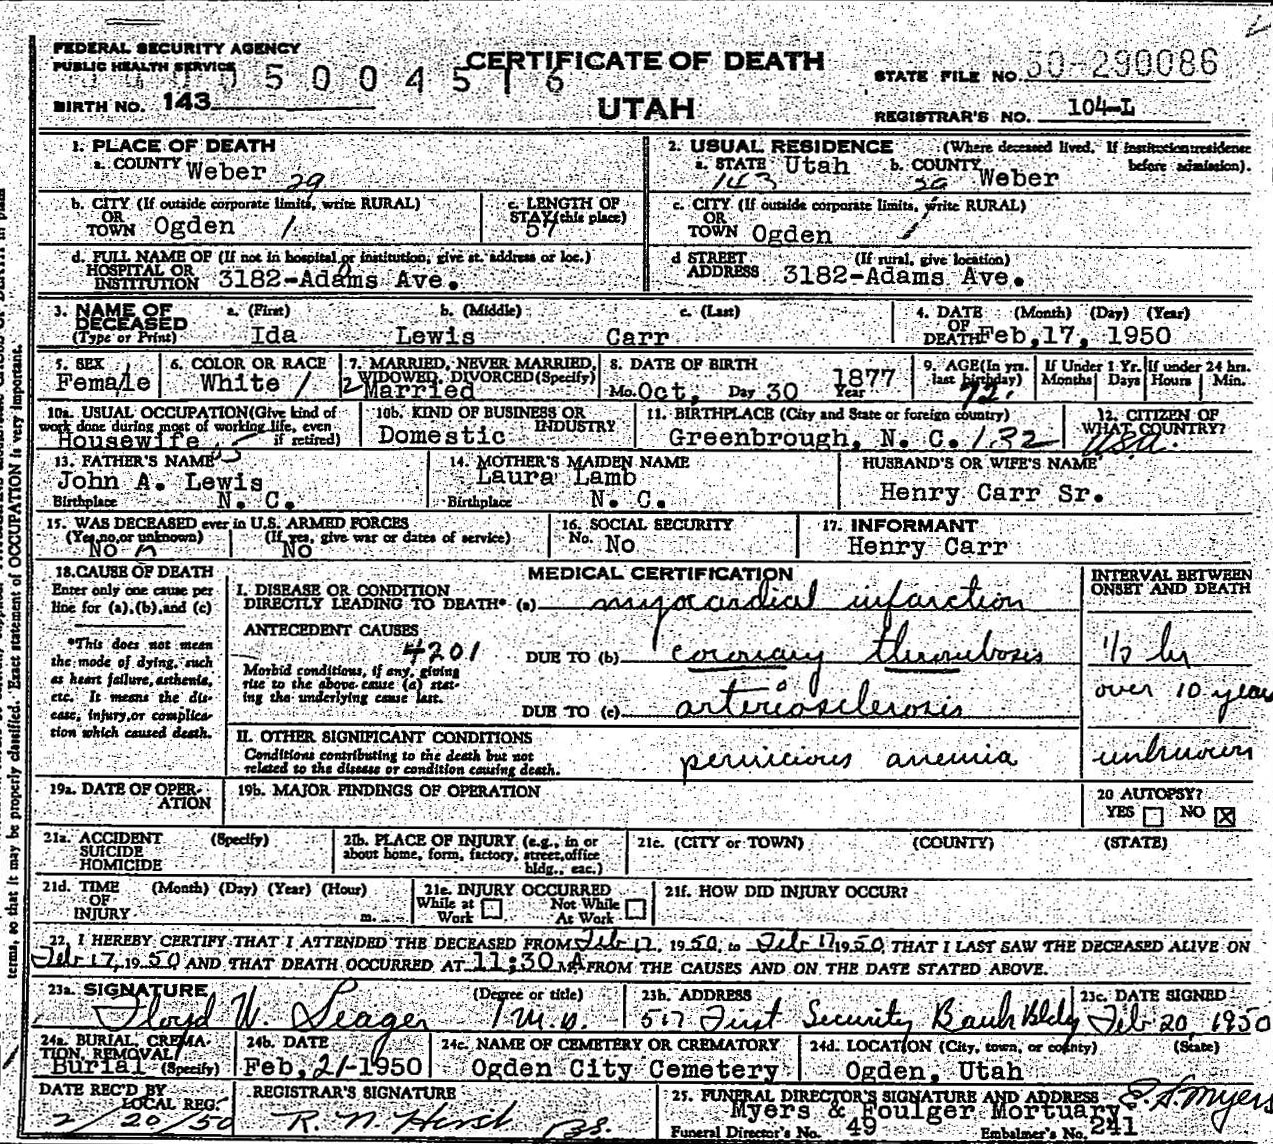 FEDERAL SECURITY AGENCY
PUBLIC HEALTH SERVICE
5004516
CERTIFICATE OF DEATH
STATE FILE NO. 50-290086
BIRTH NO. 143
UTAH
REGISTRAR'S NO. 104-L
1. PLACE OF DEATH
a. COUNTY Weber 29
2. USUAL RESIDENCE (Where deceased lived. If institution: residence before admission).
a. STATE Utah b. COUNTY Weber
143 29
b. CITY (If outside corporate limits, write RURAL)
OR TOWN Ogden 1
c. LENGTH OF STAY (this place)
57
c. CITY (If outside corporate limits, write RURAL)
OR TOWN Ogden 1
d. FULL NAME OF (If not in hospital or institution, give st. address or loc.)
HOSPITAL OR INSTITUTION 3182-Adams Ave.
d STREET ADDRESS (If rural, give location)
3182-Adams Ave.
3. NAME OF DECEASED (Type or Print)
a. (First) b. (Middle) c. (Last)
Ida Lewis Carr
4. DATE OF DEATH (Month) (Day) (Year)
Feb, 17, 1950
5. SEX
Female 1
6. COLOR OR RACE
White 1
7. MARRIED, NEVER MARRIED, WIDOWED, DIVORCED (Specify)
2 Married
8. DATE OF BIRTH
Mo. Oct, Day 30 Year 1877
9. AGE (In yrs. last birthday)
72.
If Under 1 Yr. Months Days
If under 24 hrs. Hours Min.
10a. USUAL OCCUPATION (Give kind of work done during most of working life, even if retired)
Housewife
10b. KIND OF BUSINESS OR INDUSTRY
Domestic
11. BIRTHPLACE (City and State or foreign country)
Greenbrough, N. C. 132
12. CITIZEN OF WHAT COUNTRY?
U.S.A.
13. FATHER'S NAME
John A. Lewis
Birthplace N. C.
14. MOTHER'S MAIDEN NAME
Laura Lamb
Birthplace N. C.
HUSBAND'S OR WIFE'S NAME
Henry Carr Sr.
15. WAS DECEASED ever in U.S. ARMED FORCES
(Yes, no, or unknown) (If yes, give war or dates of service)
No No
16. SOCIAL SECURITY
No. No
17. INFORMANT
Henry Carr
18. CAUSE OF DEATH
Enter only one cause per line for (a), (b), and (c)
*This does not mean the mode of dying, such as heart failure, asthenia, etc. It means the disease, injury, or complication which caused death.
MEDICAL CERTIFICATION
INTERVAL BETWEEN ONSET AND DEATH
I. DISEASE OR CONDITION
DIRECTLY LEADING TO DEATH* (a) myocardial infarction
ANTECEDENT CAUSES
4201
Morbid conditions, if any, giving rise to the above cause (a) stating the underlying cause last.
DUE TO (b) coronary thrombosis 1/2 hr
DUE TO (c) arteriosclerosis over 10 years
II. OTHER SIGNIFICANT CONDITIONS
Conditions contributing to the death but not related to the disease or condition causing death.
pernicious anemia unknown
19a. DATE OF OPERATION
19b. MAJOR FINDINGS OF OPERATION
20 AUTOPSY?
YES NO X
21a. ACCIDENT SUICIDE HOMICIDE (Specify)
21b. PLACE OF INJURY (e.g., in or about home, form, factory, street, office bldg., eac.)
21c. (CITY or TOWN) (COUNTY) (STATE)
21d. TIME OF INJURY (Month) (Day) (Year) (Hour) m.
21e. INJURY OCCURRED
While at Work Not While At Work
21f. HOW DID INJURY OCCUR?
22. I HEREBY CERTIFY THAT I ATTENDED THE DECEASED FROM Feb 17, 1950, to Feb 17 1950 THAT I LAST SAW THE DECEASED ALIVE ON
Feb 17, 1950 AND THAT DEATH OCCURRED AT 11:30 A M. FROM THE CAUSES AND ON THE DATE STATED ABOVE.
23a. SIGNATURE (Degree or title)
Floyd W. Seager M.D.
23b. ADDRESS
517 First Security Bank Bldg
23c. DATE SIGNED
Feb 20, 1950
24a. BURIAL, CREMATION, REMOVAL (Specify)
Burial
24b. DATE
Feb, 21-1950
24c. NAME OF CEMETERY OR CREMATORY
Ogden City Cemetery
24d. LOCATION (City, town, or county) (State)
Ogden, Utah
DATE REC'D BY LOCAL REG.
2/20/50
REGISTRAR'S SIGNATURE
R. N. Hirst
25. FUNERAL DIRECTOR'S SIGNATURE AND ADDRESS E.S. Myers
Myers & Foulger Mortuary
Funeral Director's No. 49 Embalmer's No. 241
terms, so that it may be properly classified. Exact statement of OCCUPATION is very important.